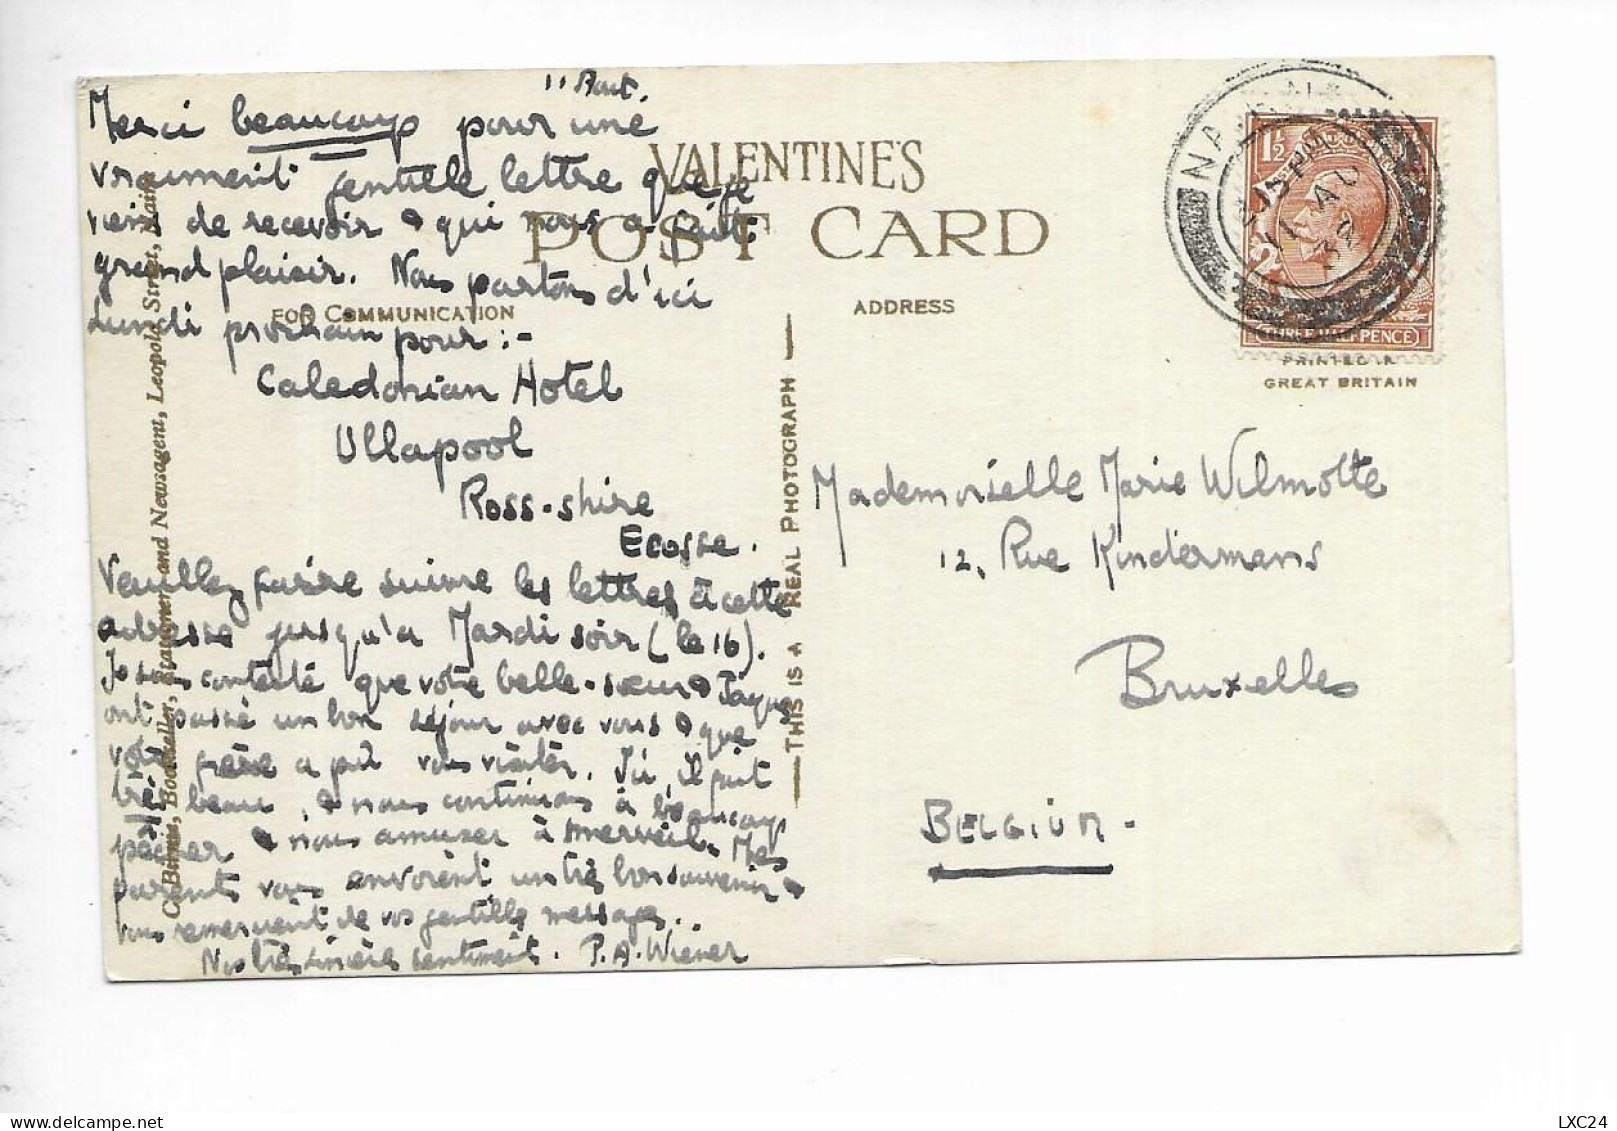 11 Août.
Merci beaucoup pour une
vraiment gentille lettre que je
viens de recevoir & qui nous a fait
grand plaisir. Nous partons d'ici
Lundi prochain pour :-
Caledonian Hotel
Ullapool
Ross-shire
Ecosse.
Veuillez faire suivre les lettres à cette
adresse jusqu'à Mardi soir (le 16).
Je suis contente que votre belle-sœur & Jacques
ont passé un bon séjour avec vous & que
votre frère a pu vous visiter. Ici, il fait
très beau, & nous continuons à beaucoup
pêcher & nous amuser à merveille. Mes
parents vous envoient un très bon souvenir &
vous remercient de vos gentille message.
Nos très sincères sentiments. P.A. Wiener
VALENTINE'S
POST CARD
FOR COMMUNICATION
ADDRESS
THIS IS A REAL PHOTOGRAPH
Bookseller, Stationer and Newsagent, Leopold Street, Nairn
NAIRN
2 15 PM
11 AU
32
1½
THREE HALF PENCE
PRINTED IN
GREAT BRITAIN
Mademoiselle Marie Wilmotte
12, Rue Kindermans
Bruxelles
BELGIUM -
LXC24